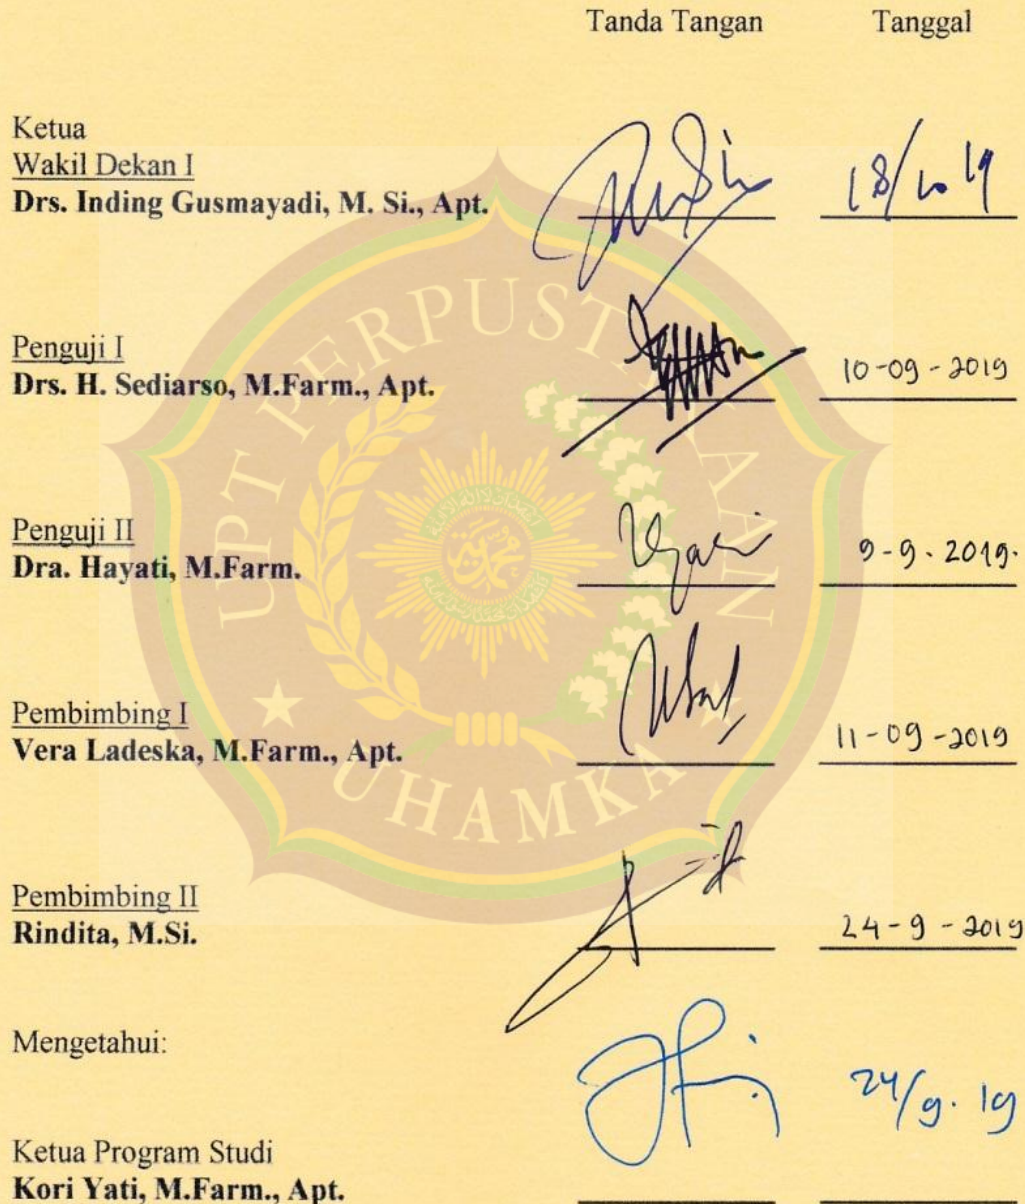 Tanda Tangan Tanggal
Ketua
Wakil Dekan I
Drs. Inding Gusmayadi, M. Si., Apt. 18/10 19
Penguji I
Drs. H. Sediarso, M.Farm., Apt. 10-09-2019
Penguji II
Dra. Hayati, M.Farm. 9-9.2019.
Pembimbing I
Vera Ladeska, M.Farm., Apt. 11-09-2019
Pembimbing II
Rindita, M.Si. 24-9-2019
Mengetahui:
24/9.19
Ketua Program Studi
Kori Yati, M.Farm., Apt.
UPT PERPUSTAKAAN
UHAMKA